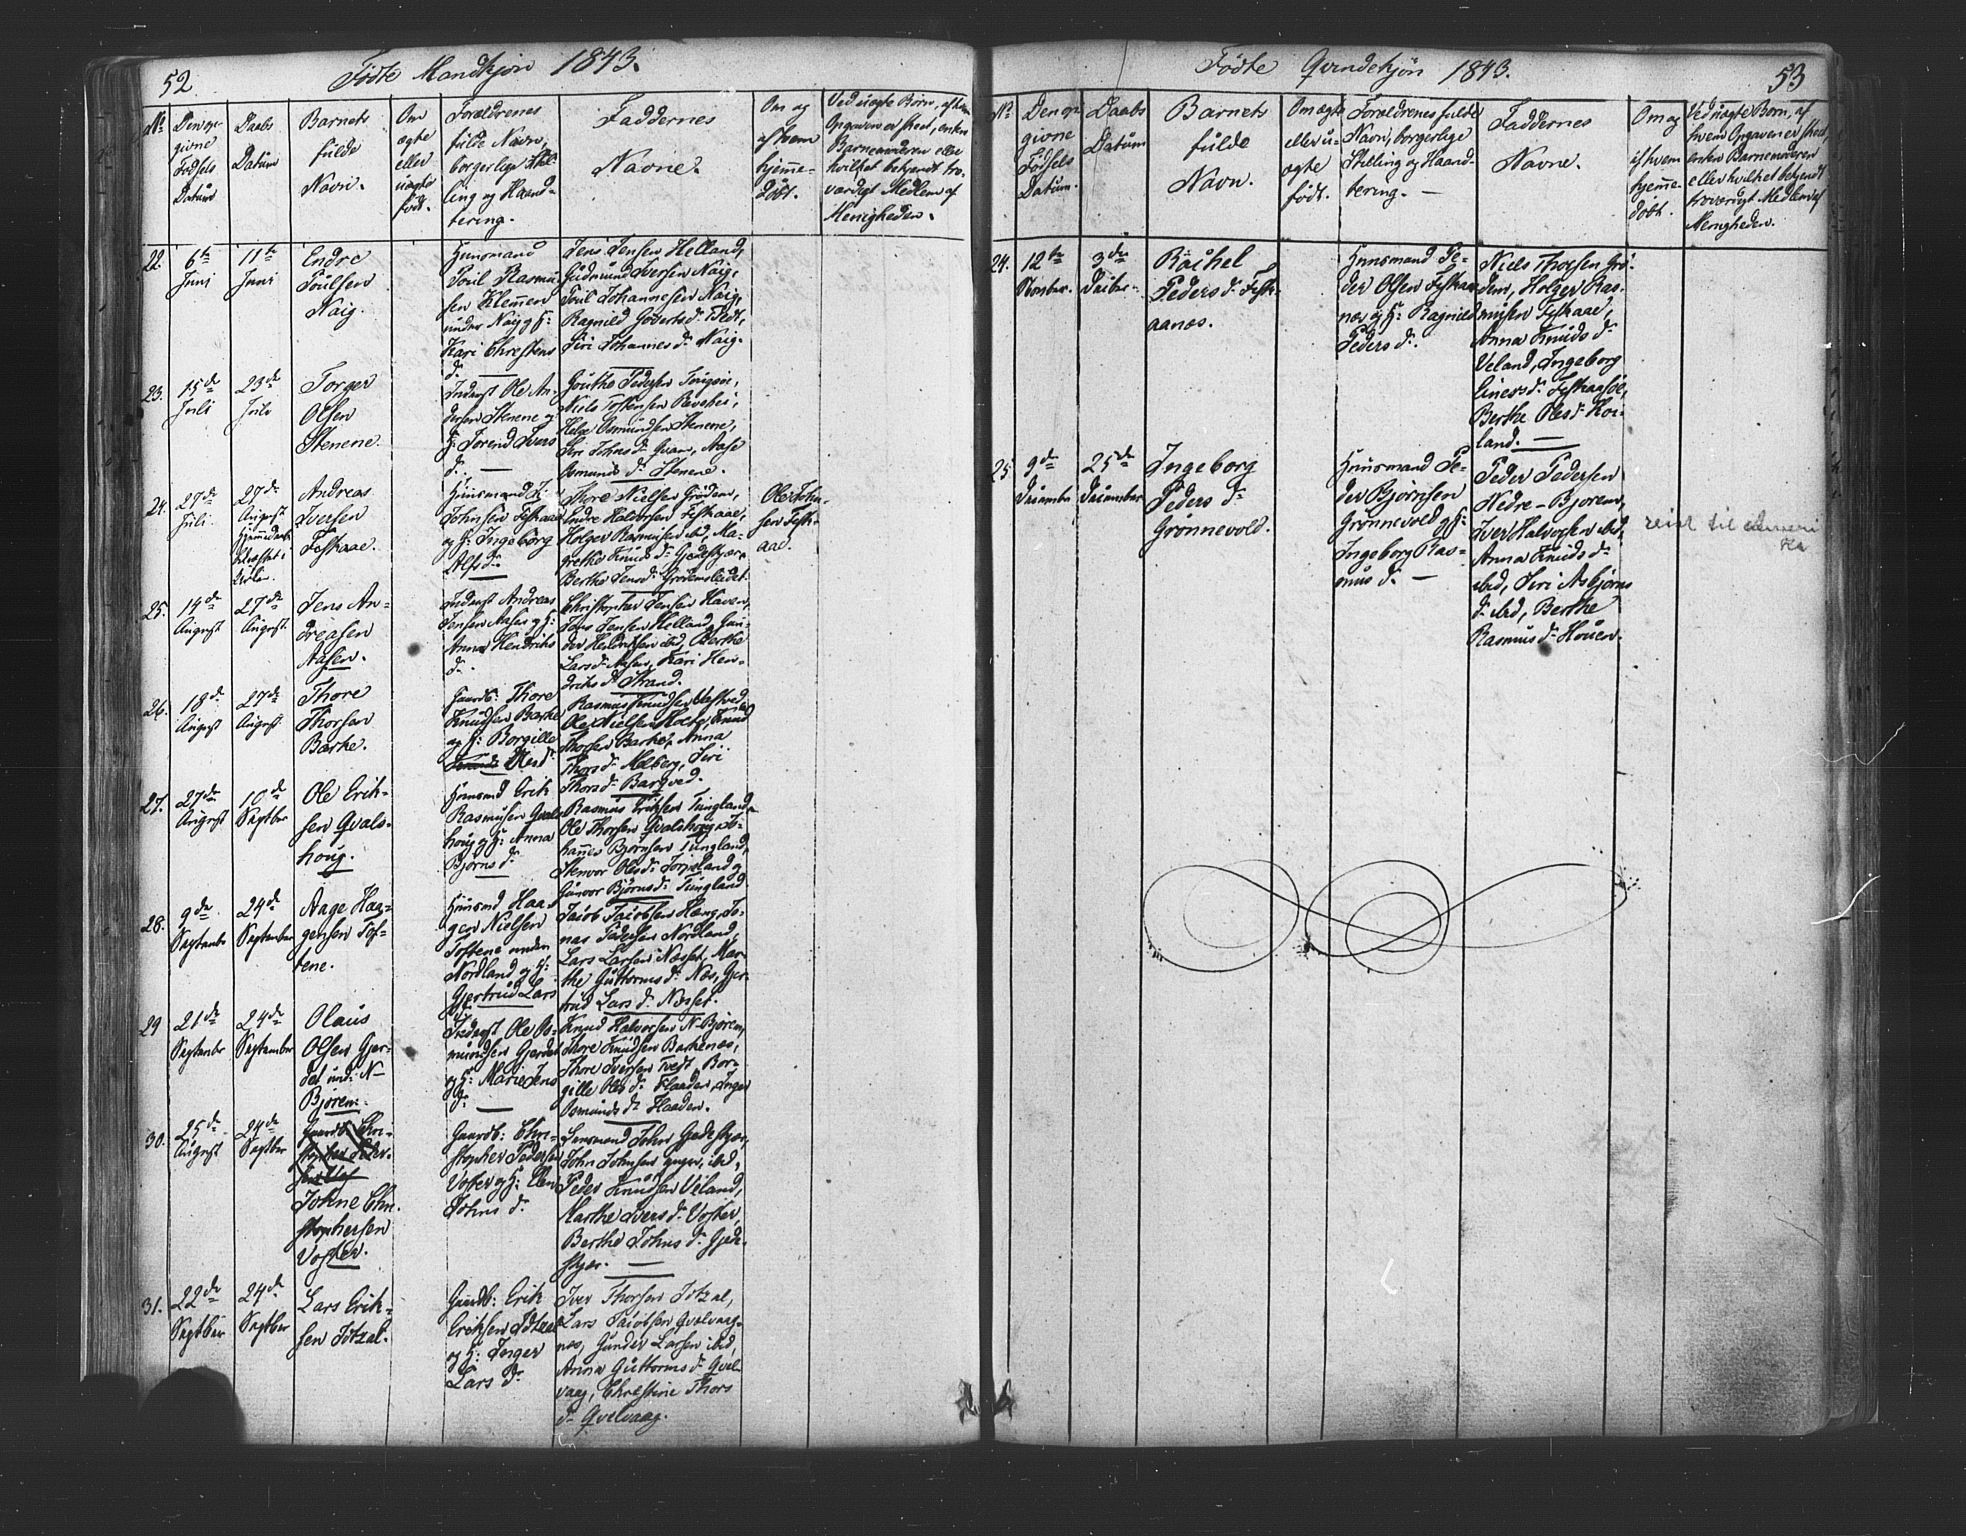 52
Fødte Mandkjøn 1843.
No
Den op-
givne
Fødsels
Datum
Daabs
Datum
Barnets
fulde
Navn.
Om
ægte
eller
uægte
født.
Forældrenes
fulde Navn,
borgerlige Stil-
ling og Haand-
tering.
Faddernes
Navne.
Om og
af hvem
hjemme-
døbt.
Ved uægte Børn, af hvem
Opgaven er skeet, enten
Barnemoderen eller
hvilket bekjendt tro-
værdigt Medlem af
Menigheden.
22.
6te
Juni
11te
Juni
Endre
Poulsen
Naig.
Huusmand
Poul Rasmu-
sen Klemmen
under Naig og H:
Kari Christens
d.
Jens Jensen Helland,
Gudmund Iversen Naig,
Poul Johannesen Naig,
Ragnild Goverts d. Tvedt,
Siri Johannes d. Naig.
23.
15de
Juli
23de
Juli
Torger
Olsen
Stenene.
Inderst Ole An-
dersen Stenene og
H: Torend Ivers
d.
Gouthe Pedersen
Niels Tostensen
Helge Osmundsen Stenene,
Siri Johns d. Qvam, Aase
Osmunds d. Stenene.
24.
27de
Juli
27de
August
Andreas
Iversen
Feskaae.
Huusmand I.
Johnsen Feskaae
og H: Ingeborg
Alfs d.
Thore Nielsen Grødem,
Endre Halvorsen Feskaae,
Holger Rasmusen ibd, Ma-
grethe Knuds d. Gjedeskjær,
Berthe Jens d. Grødemsleidet.
Ole John-
sen Fesk-
aae.
25.
14de
August
27de
August
Jens An-
dreasen
Aasen.
Inderst Andreas
Jensen Aasen og H:
Anna Hendriks
d.
Christopher Jensen Haven,
Jens Jensen Helland, Gun-
der Hendriksen ibd, Berthe
Lars d. Aasen, Kari Hen-
driks d. Strand.
26.
18de
August
27de
August
Thore
Thorsen
Barke.
Gaardb: Thore
Knudsen Barke
og H: Borgille
Oles d.
Rasmus Knudsen
Ole Nielsen Hoeg, Knud
Thorsen Barke, Anna
Thors d. Melberg, Siri
Thors d. Barqved.
27.
27de
August
10de
Septbr
Ole Erik-
sen Qvals-
houg.
Huusmd Erik
Rasmusen Qvals-
houg og H: Anna
Bjørns d.
Rasmus Eriksen Tungland,
Ole Thorsen Qvalshoug, Jo-
hannes Bjørnsen Tungland,
Stenvor Oles d. Torjsland og
Gunvor Bjørns d. Tungland.
28.
9de
Septembr
24de
September
Aage Haa-
gensen Tof-
tene.
Huusmd Haa-
gen Nielsen
Toftene under
Nordland og H:
Gjertrud Lars
d.
Jacob Jacobsen Hæng, Jo-
nas Pedersen Nordland,
Lars Larsen Næsset, Mar-
the Guttorms d. Næs, Gjer-
trud Lars d. Næsset.
29
21de
Septembr
24de
Septembr
Olaus
Olsen Gjer-
det und: N-
Bjorem.
Inderst Ole Os-
mundsen Gjerdet
og H: Marie Jens
d.
Knud Halvorsen N-Bjorem,
Thore Knudsen Barkenæs,
Thore Iversen Tvedt, Bor-
gille Oles d. Haaden, Inger
Osmunds d. Haaden.
30.
25de
August
24de
Septbr
Johne Chri-
stophersen
Voster.
Gaardb: Chri-
stopher Pedersen
Voster og H: Elen
Johns d.
Lensmand John Gjedeskjær,
John Johnsen yngre, ibd,
Peder Knudsen Veland,
Marthe Ivers d. Voster,
Berthe Johns d. Gjede-
skjær.
31.
22de
Septbr
24de
Septbr
Lars Erik-
sen Jøtzal.
Gaardb: Erik
Eriksen Jøtzal
og H: Inger
Lars d.
Iver Thorsen Jøtzal,
Lars Jacobsen Qvalvaag-
næs, Gunder Larsen ibd,
Anna Guttorms d. Qval-
vaag, Christine Thors
d. Qvalvaag.
Fødte Qvindekjøn 1843.
53
No
Den op-
givne
Fødsels
Datum.
Daabs
Datum
Barnets
fulde
Navn.
Om ægte
eller u-
ægte
født.
Forældrenes fulde
Navn, borgerlige
Stilling og Haand-
tering.
Faddernes
Navne.
Om og
af hvem
hjemme-
døbt.
Ved uægte Børn, af
hvem Opgaven er skeet,
enten Barnemoderen
eller hvilket bekjendt
troværdigt Medlem af
Menigheden.
24.
12te
Novber.
3die
Decbr.
Rachel
Peders d. Fesk-
aanæs.
Huusmand Pe-
der Olsen Feskaa-
næs og H: Ragnild
Peders d.
Niels Thorsen Grø-
dem, Holger Ras-
musen Feskaae,
Anna Knuds d.
Veland, Ingeborg
Einers d. Feskaae,
Berthe Oles d. Høi-
land.
25.
9de
December
25de
December
Ingeborg
Peders d.
Grønnevold.
Huusmand Pe-
der Bjørnsen
Grønnevold og H:
Ingeborg Ras-
mus d.
Peder Pedersen
Nedre-Bjorem,
Iver Halvorsen ibd,
Anna Knuds d.
ibd, Siri Asbjørns
d. ibd, Berthe
Rasmus d. Houen.
reist til Ameri
ka